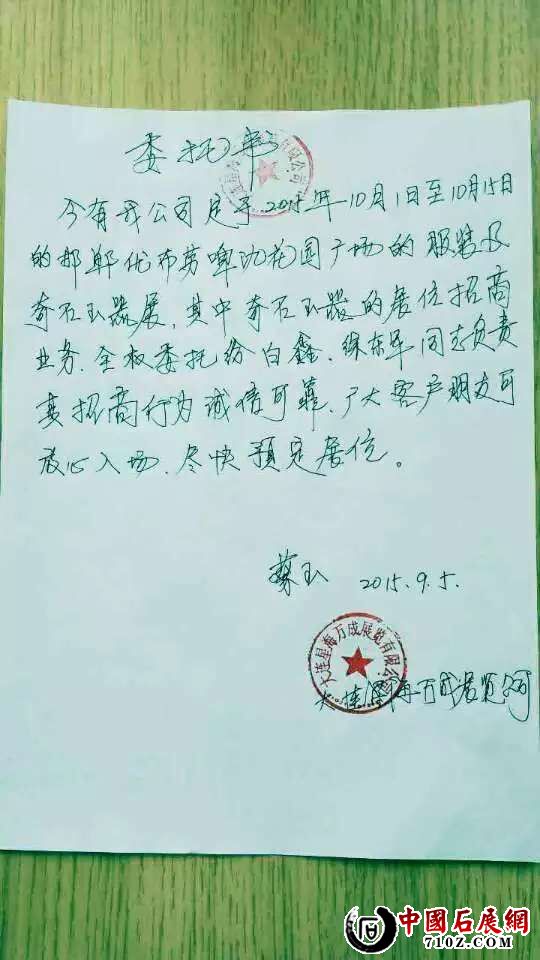 委托书
今有我公司定于2015年10月1日至10月15日
的邯郸优布劳啤酒花园广场的服装及
奇石玉器展,其中奇石玉器的展位招商
业务、全权委托给白鑫、徐东军同志负责
其招商行为诚信可靠、广大客户朋友可
放心入场、尽快预定展位。
蔡玉 2015.9.5.
大连星海万成展览有限公司
大连星海万成展览公司
中國石展網
710Z.COM